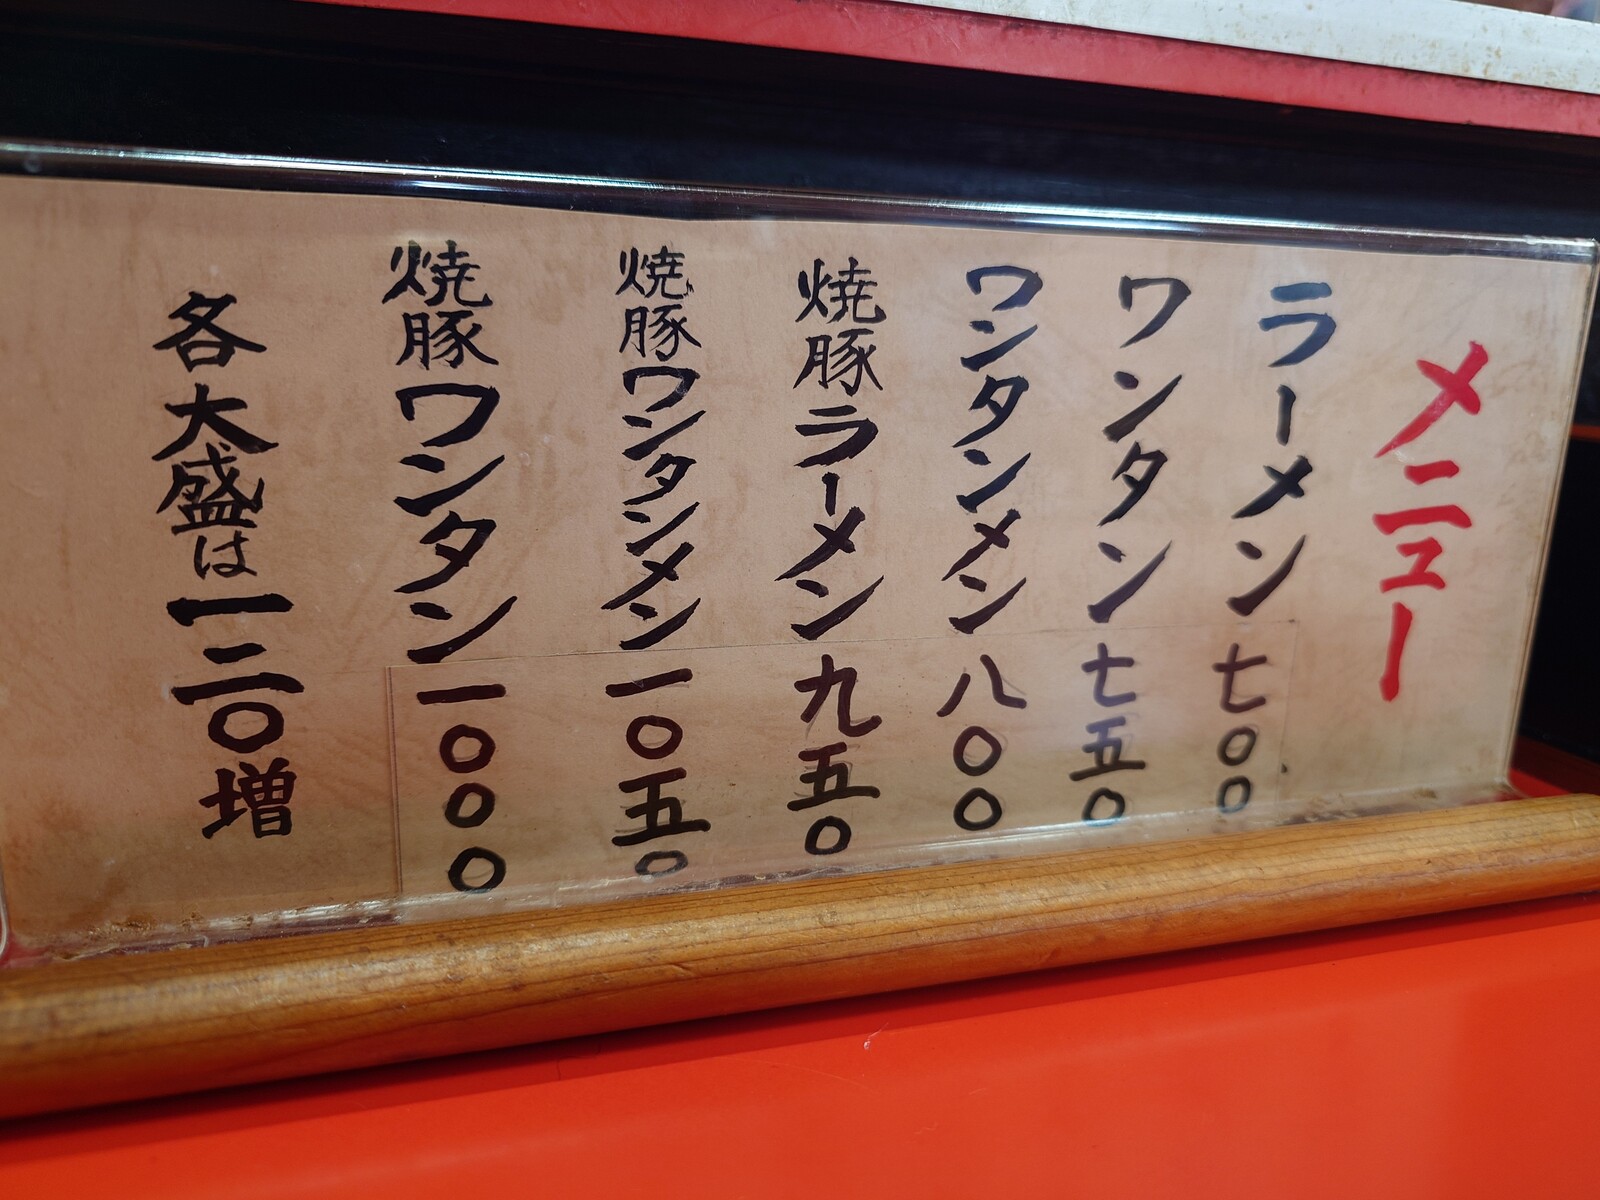 メニュー
ラーメン七〇〇
ワンタン七五〇
ワンタンメン八〇〇
焼豚ラーメン九五〇
焼豚ワンタンメン一〇五〇
焼豚ワンタン一〇〇〇
各大盛は一二〇増